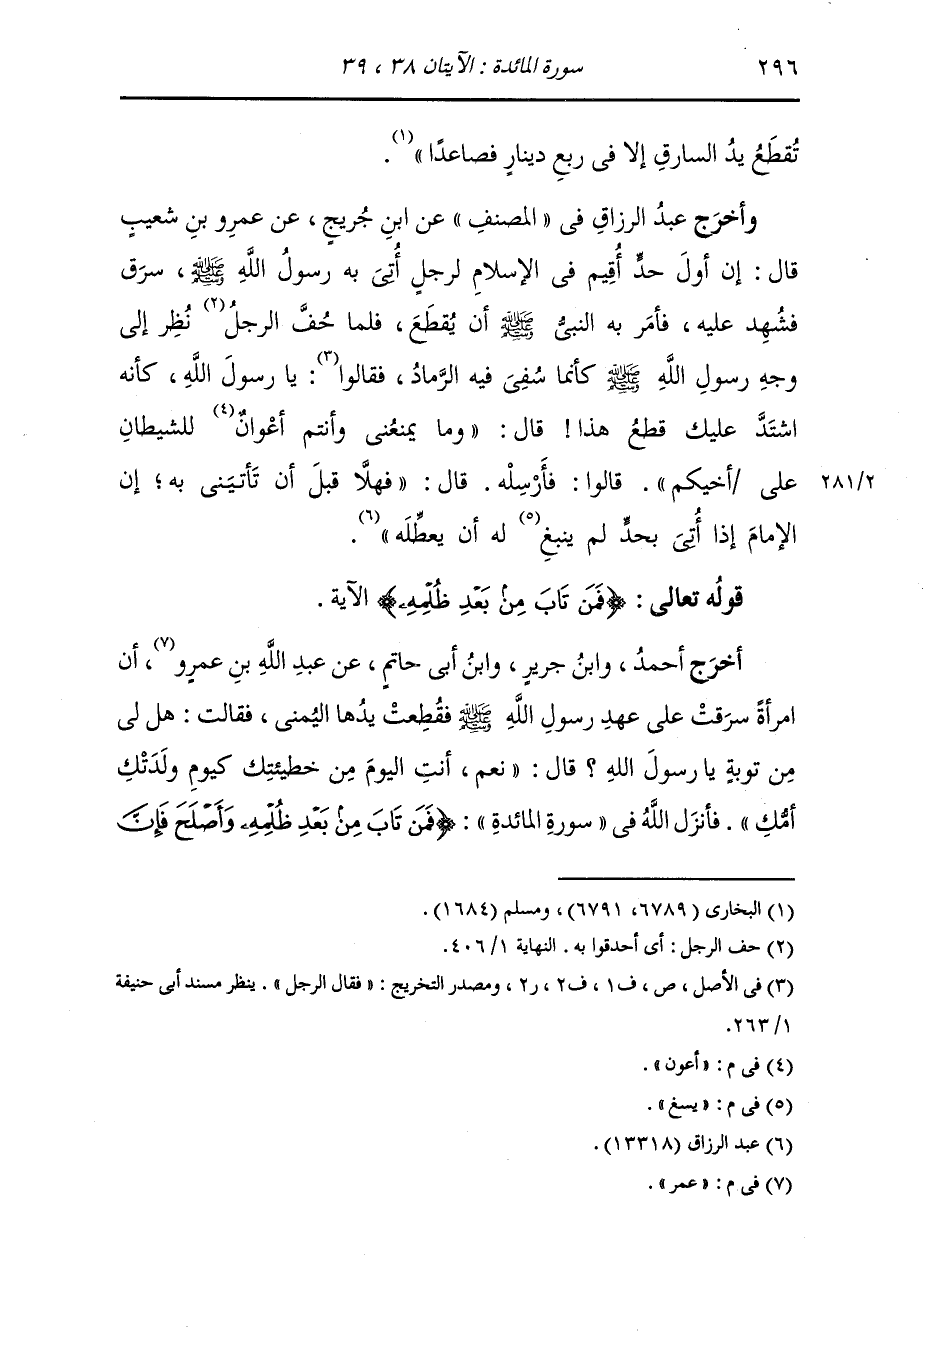 ٢٩٦ سورة المائدة : الآيتان ٣٨ ، ٣٩
تُقطَعُ يدُ السارقِ إلا فى ربعِ دينارٍ فصاعدًا »(١).
وأخرَج عبدُ الرزاقِ فى « المصنفِ » عن ابنِ جُريجٍ ، عن عمرِو بنِ شعيبٍ
قال : إن أولَ حدٍّ أُقِيم فى الإسلامِ لرجلٍ أُتِىَ به رسولُ اللَّهِ ﷺ ، سرَق
فشُهِد عليه ، فأمَر به النبىُّ ﷺ أن يُقطَعَ ، فلما حُفَّ الرجلُ(٢) نُظِر إلى
وجهِ رسولِ اللَّهِ ﷺ كأنما سُفِىَ فيه الرَّمادُ ، فقالوا(٣): يا رسولَ اللَّهِ ، كأنه
اشتَدَّ عليك قطعُ هذا ! قال : « وما يمنعُنى وأنتم أعْوانٌ(٤) للشيطانِ
على /أخيكم » . قالوا : فأَرْسِلْه . قال : « فهلَّا قبلَ أن تَأتيَنى به ؛ إن ٢٨١/٢
الإمامَ إذا أُتِىَ بحدٍّ لم ينبغِ(٥) له أن يعطِّلَه »(٦).
قولُه تعالى : ﴿فَمَن تَابَ مِنۢ بَعْدِ ظُلْمِهِۦ﴾ الآية .
أخرَج أحمدُ ، وابنُ جريرٍ ، وابنُ أبى حاتمٍ ، عن عبدِ اللَّهِ بنِ عمرٍو(٧)، أن
امرأةً سرَقتْ على عهدِ رسولِ اللَّهِ ﷺ فقُطِعتْ يدُها اليُمنى ، فقالت : هل لى
مِن توبةٍ يا رسولَ اللهِ ؟ قال : « نعم ، أنتِ اليومَ مِن خطيئتِك كيومِ ولَدَتْكِ
أمُّكِ » . فأنزَل اللَّهُ فى « سورةِ المائدةِ » : ﴿فَمَن تَابَ مِنۢ بَعْدِ ظُلْمِهِۦ وَأَصْلَحَ فَإِنَّ
(١) البخارى (٦٧٨٩، ٦٧٩١)، ومسلم (١٦٨٤).
(٢) حف الرجل : أى أحدقوا به . النهاية ٤٠٦/١.
(٣) فى الأصل ، ص ، ف١ ، ف٢ ، ر٢ ، ومصدر التخريج : « فقال الرجل » . ينظر مسند أبى حنيفة
٢٦٣/١.
(٤) فى م : « أعون » .
(٥) فى م : « يسغ » .
(٦) عبد الرزاق (١٣٣١٨).
(٧) فى م : « عمر » .